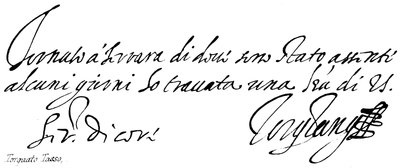 Tornato á ferrara di dove sono stato assente
alcuni giorni ho trovata una di
di core
Torq Tasso
Torquato Tasso.